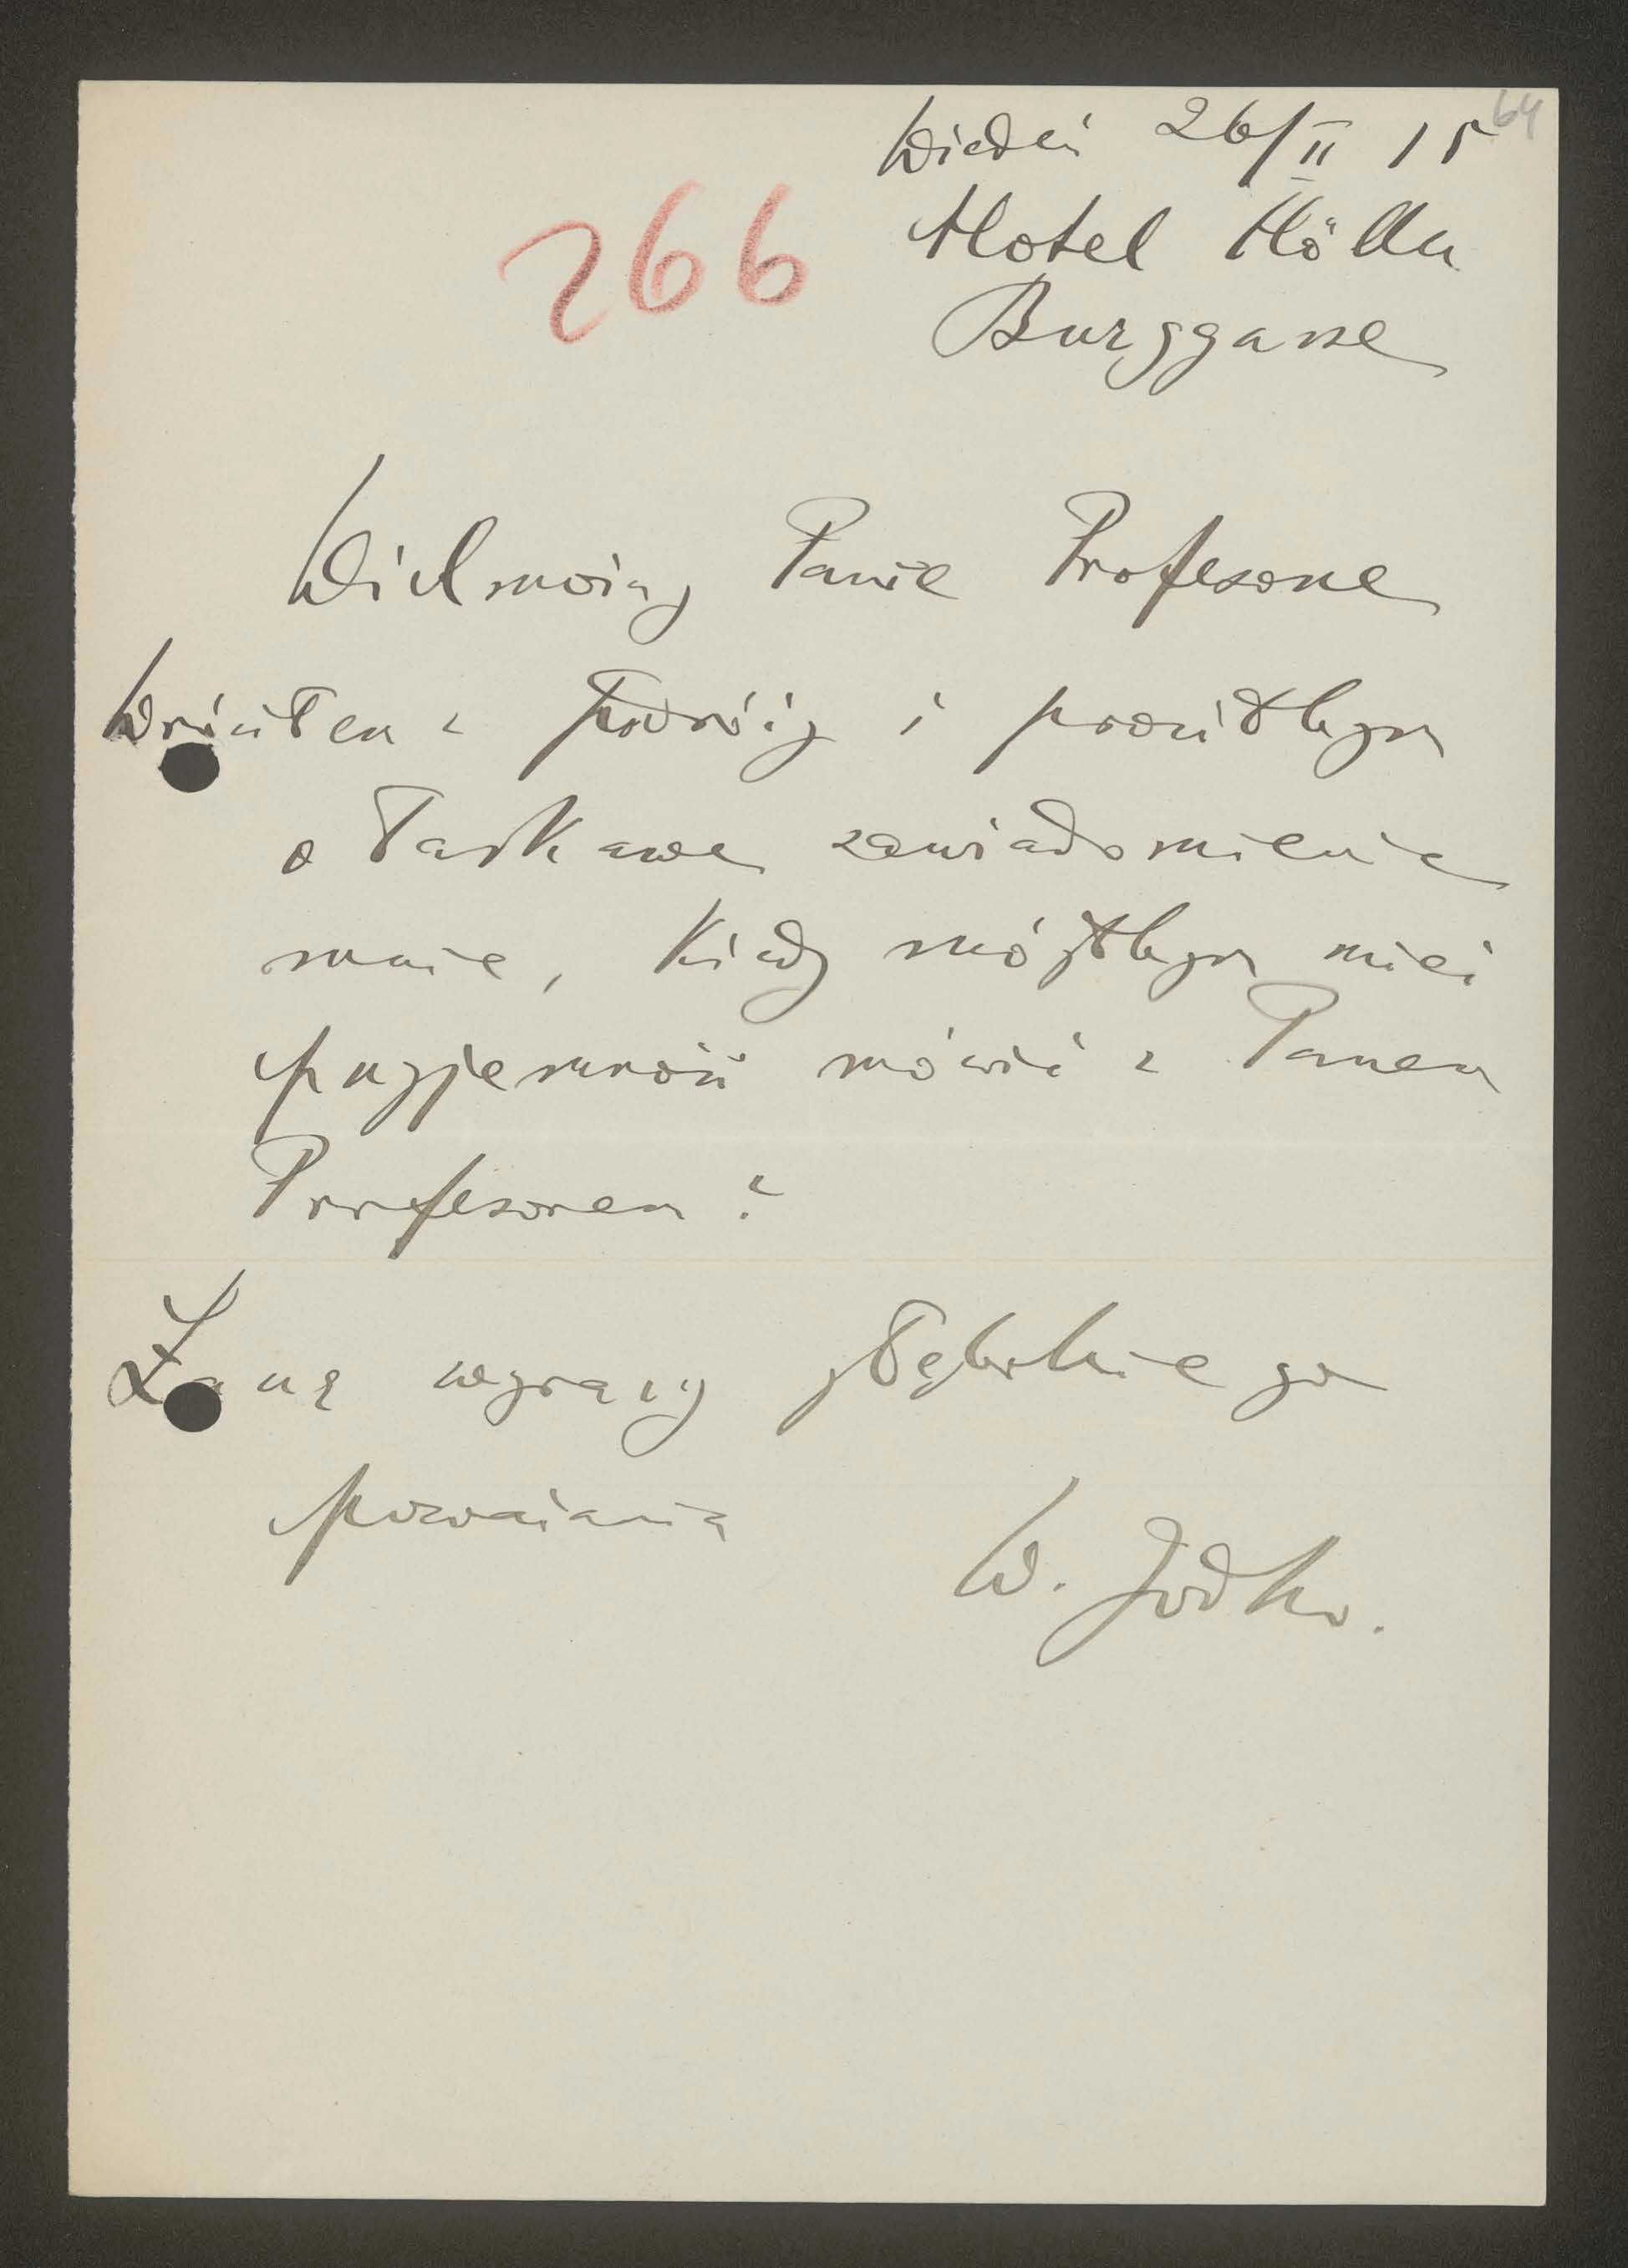 Wiedeń 26/II 15
64
Hotel Höller
Burggasse
266
Wielmożny Panie Profesorze
Wróciłem z podróży i prosiłbym
o łaskawe zawiadomienie
mnie, kiedy mógłbym mieć
przyjemność mówić z Panem
Profesorem?
Łączę wyrazy głębokiego
poważania
W. Jodko.